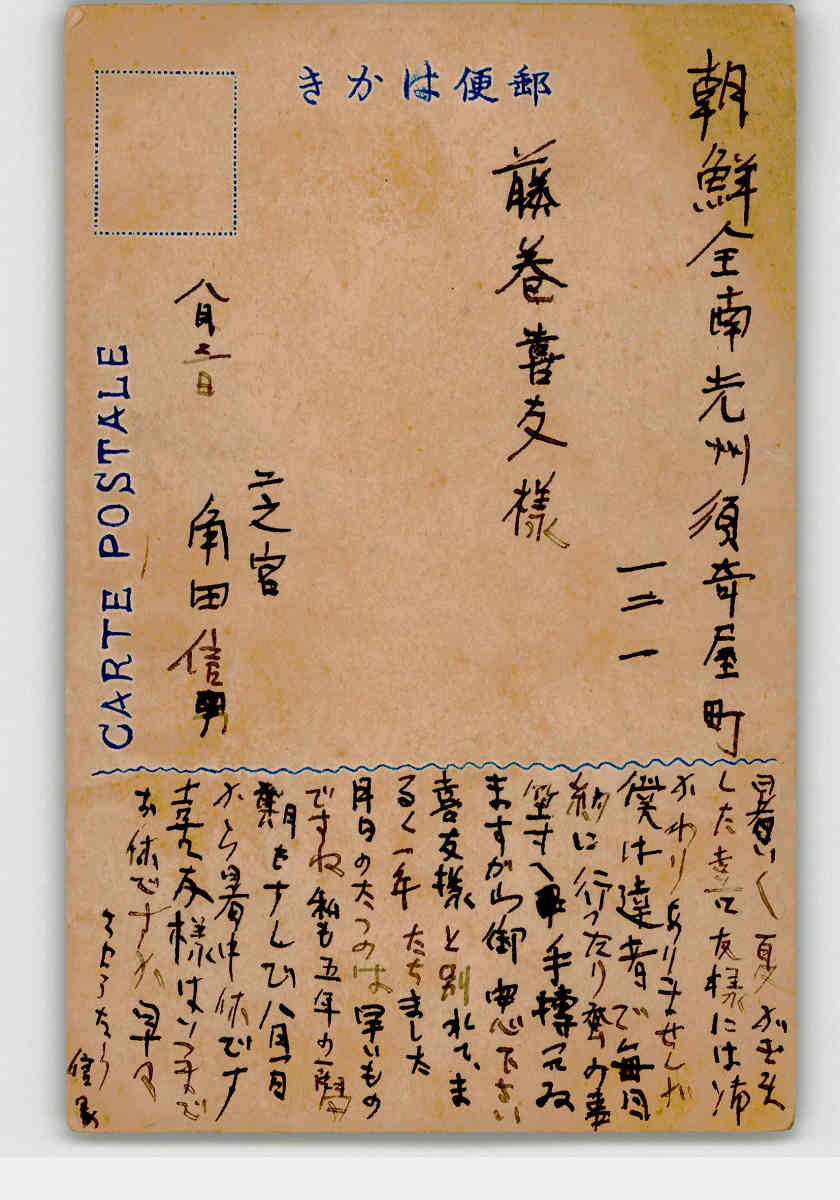 郵便はかき
朝鮮全南光州須奇屋町
一二一
藤巻喜友様
八月二日
芝宮
角田信男
CARTE POSTALE
暑い〱夏がきま
した喜友様には
かわりありませんか
僕は達者で毎日
に行ったり蚕の事
手搏って
ますから御安心下さい
喜友様と別れて、ま
る〱一年たちました
月日のたつのは早いもの
ですね私も五年の一
期もすんで八月一日
から暑中休です
喜友様はいつまで
お休ですか早々
さようなら
信男